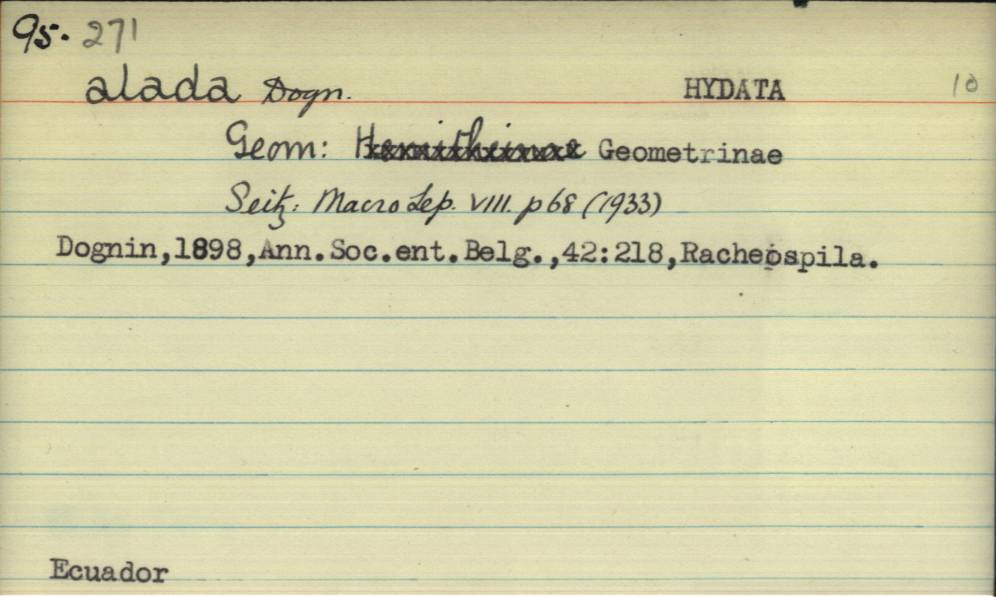 95. 271
alada Dogn. HYDATA 10
Geom: Hemitheinae Geometrinae
Seitz: Macro Lep. VIII. p 68 (1933)
Dognin,1898,Ann.Soc.ent.Belg.,42:218,Racheospila.
Ecuador